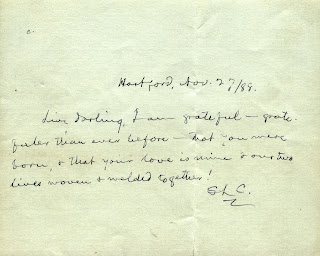 Hartford, Nov. 27/89.
Livy Darling, I am grateful — grate-
fuler than ever before — that you were
born, & that your love is mine & our two
lives woven & welded together!
SLC.